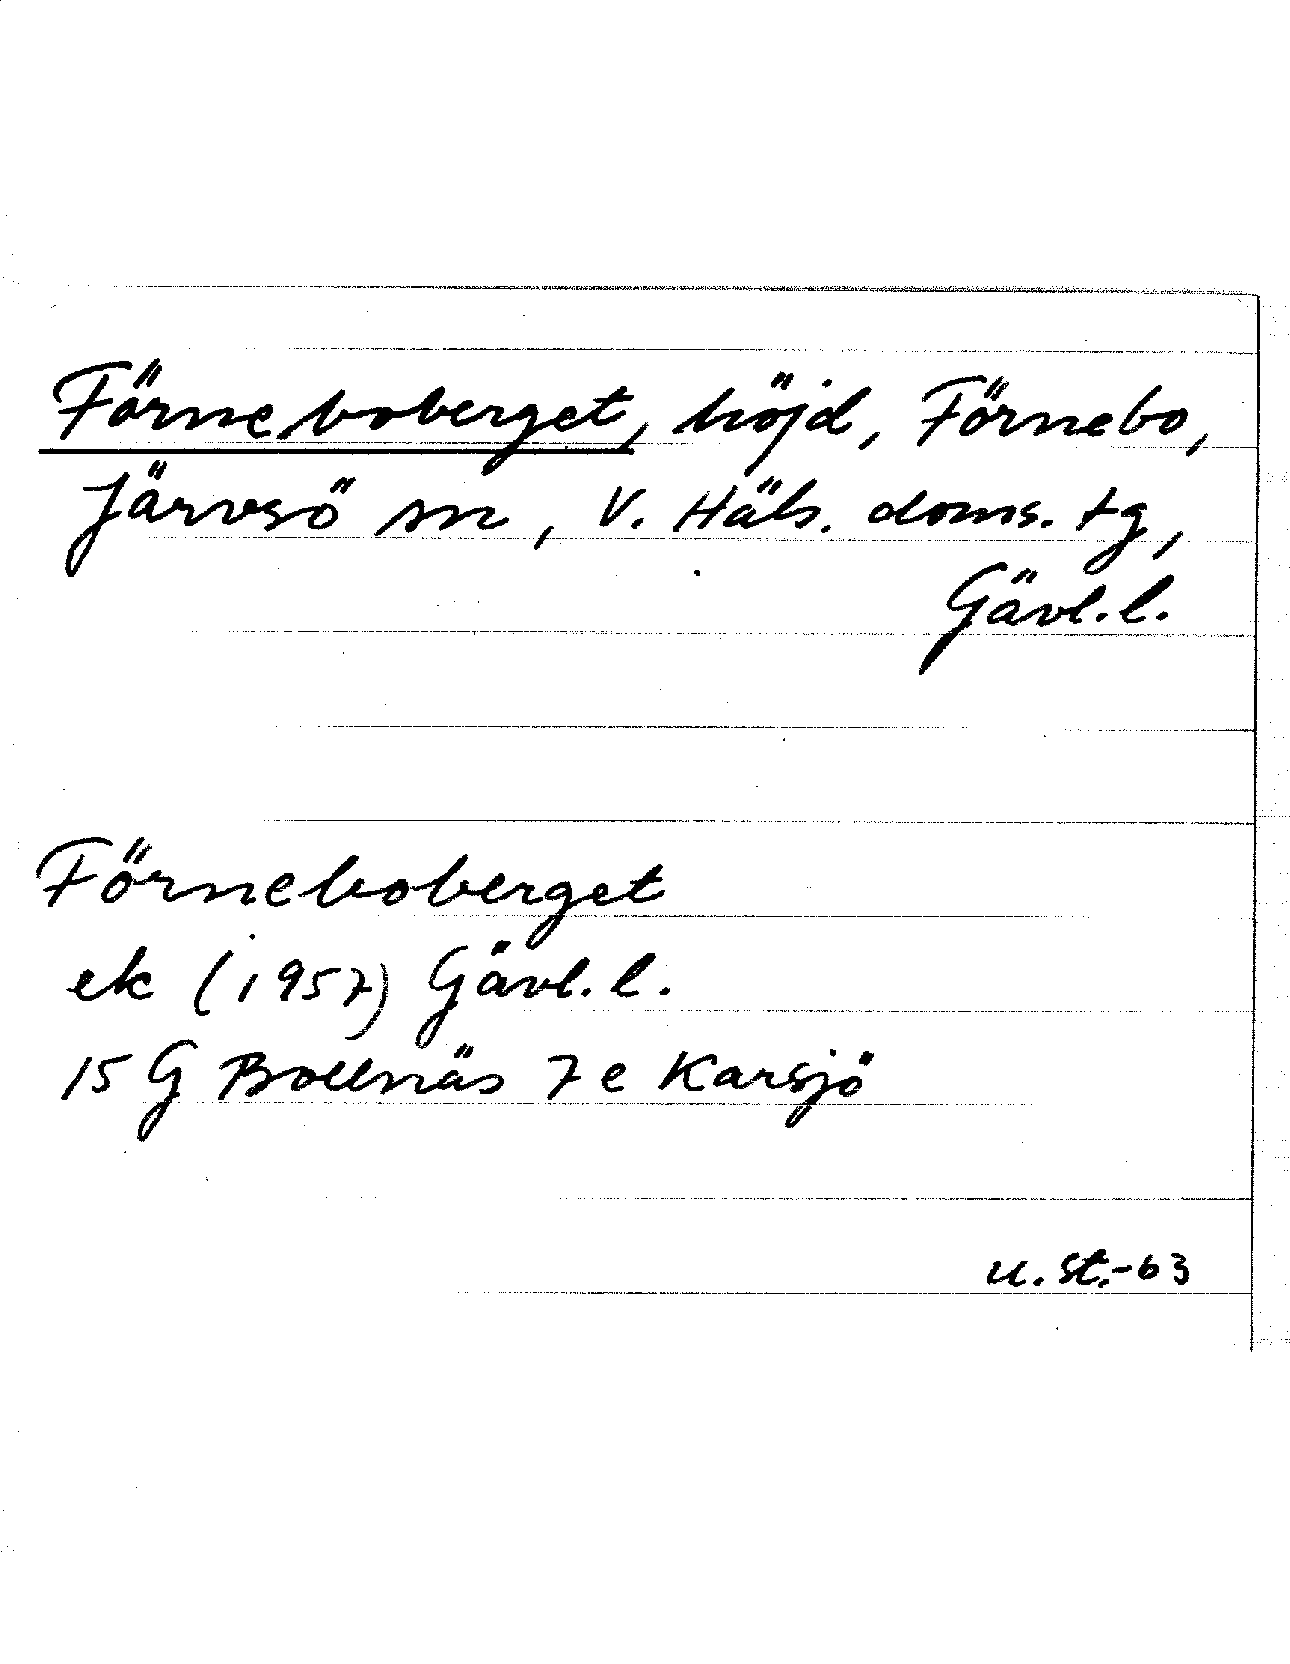 Förneboberget, höjd, Förnebo,
Järvsö sn, V. Häls. doms. tg,
Gävl. l.
Förneboberget
ek (1957) Gävl. l.
15 G Bollnäs 7 e Karsjö
u. st.-63